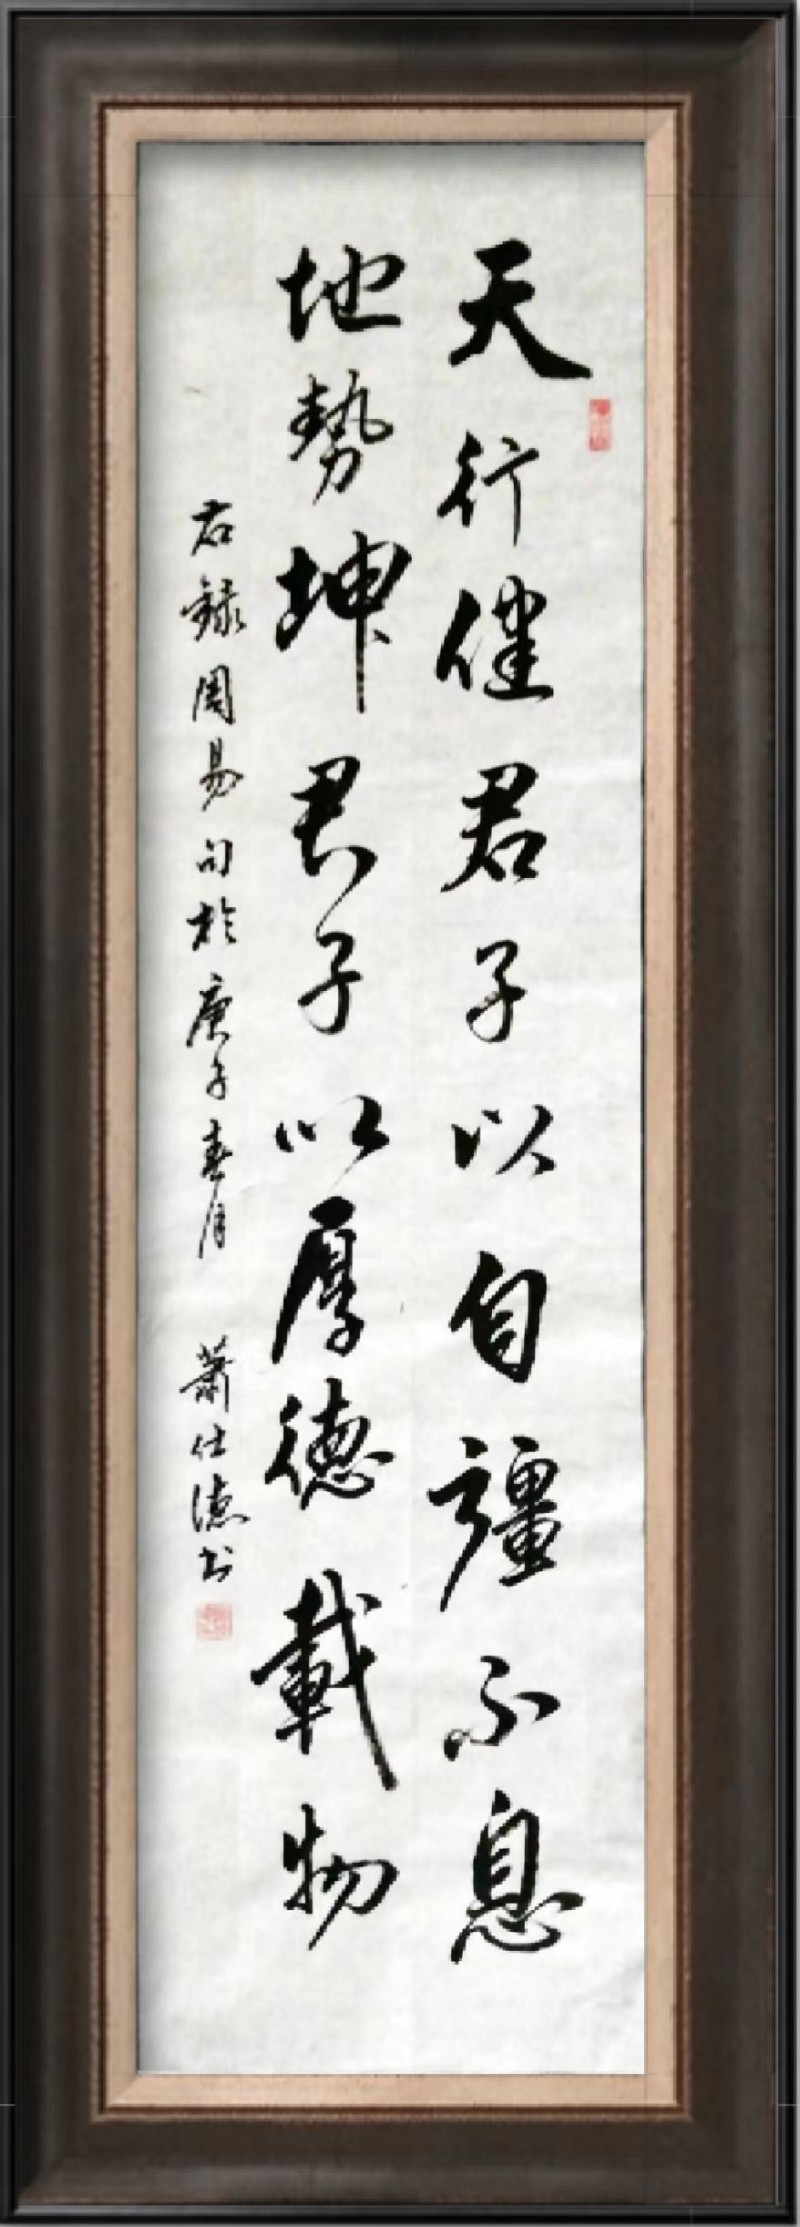 天行健君子以自彊不息
地勢坤君子以厚德載物
右録周易句於庚子春月 蕭仕德书